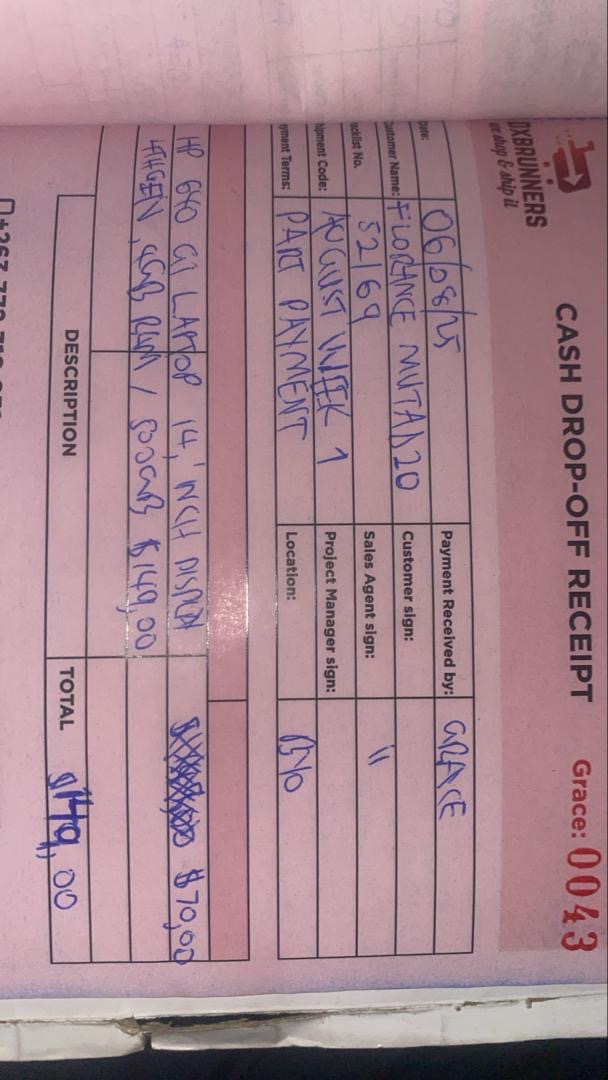 DXBRUNNERS
we shop & ship it
CASH DROP-OFF RECEIPT
Grace: 0043
Date: 06/08/25
Payment Received by: GRACE
Customer Name: FLORANCE MUTADZO
Customer sign:
cklist No. 52/69
Sales Agent sign: "
ipment Code: AUGUST WEEK 1
Project Manager sign:
yment Terms: PART PAYMENT
Location: BYO
HP 640 G1 LAPTOP 14, INCH DISPLAY $70,00
4THGEN, 4GB RAM / 500GB $149,00
DESCRIPTION
TOTAL $149,00